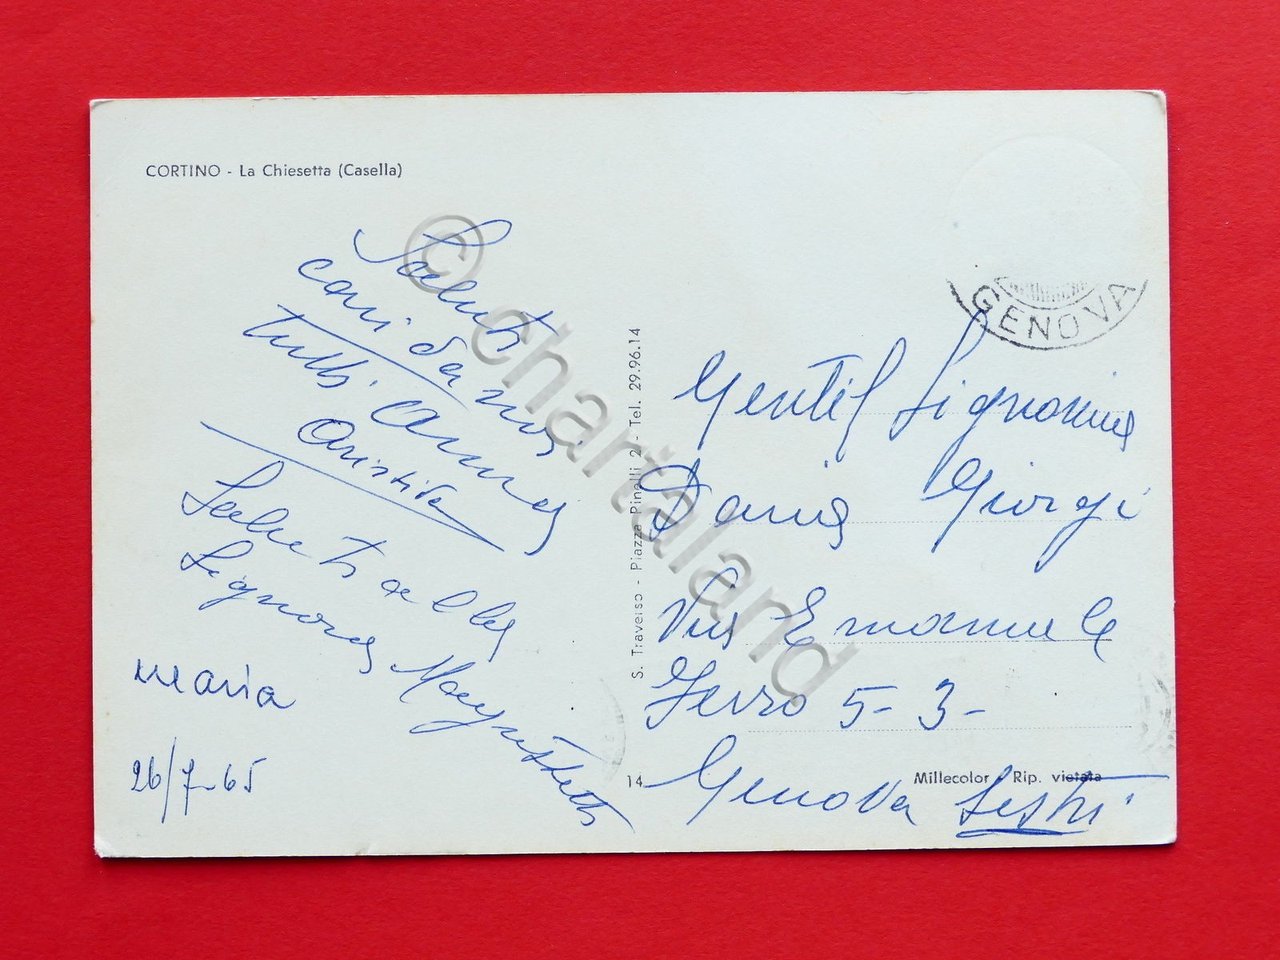 CORTINO - La Chiesetta (Casella)
Saluti
cari da noi
tutti Anna
Aristide
Saluti alla
Signora
Maria
26/7-65
S. Traverso - Piazza Pinelli 2 - Tel. 29.96.14
14
GENOVA
Gentil Signorina
Dania Giorgi
Via Emanuele
Ferro 5-3-
Genova Sestri
Millecolor Rip. vietata
© chartaland